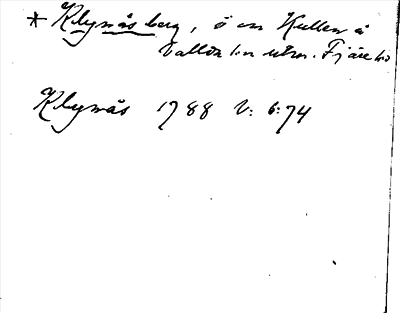 * Klynås berg, ö om Kullen å
Vallda s:n utm. Fjäre hd
Klynås 1788 V: 6:74